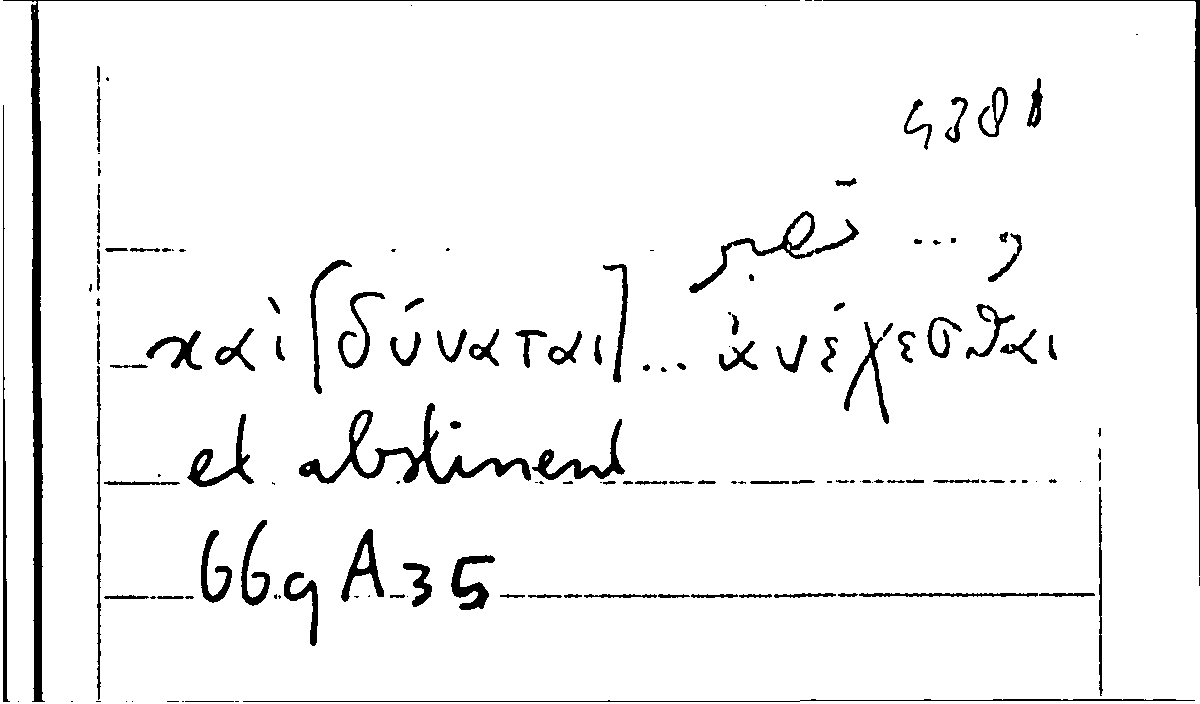 4381
و ... تصبر
καὶ [δύναται] ... ἀνέχεσθαι
et abstinent
669 A 35